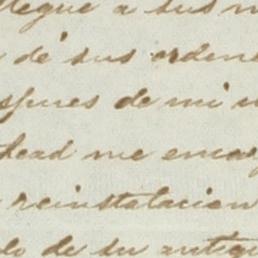 llegue a sus m
dé sus ordene
spues de mi
dead me encar
reinstalacion
lo de su antigu